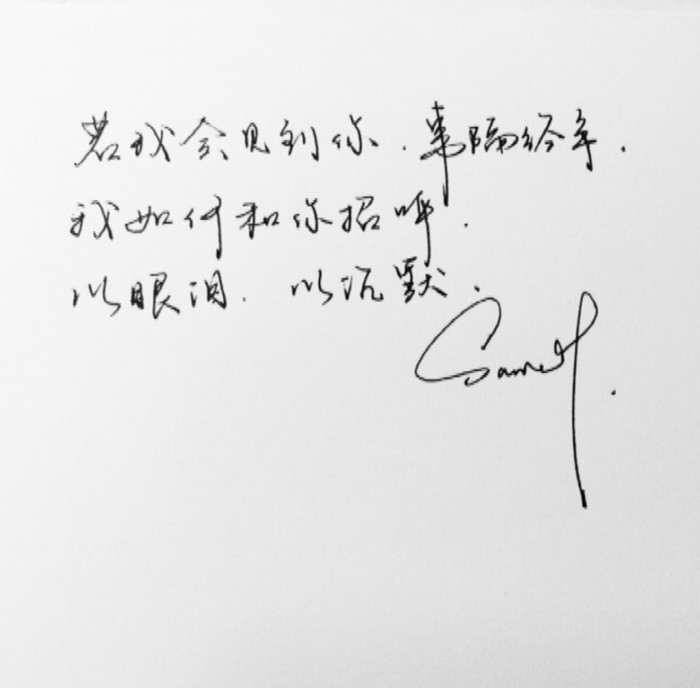 若我会见到你.事隔经年.
我如何和你招呼.
以眼泪.以沉默.